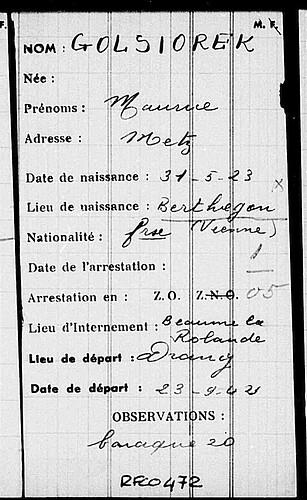 F. M. F.
NOM : GOLSIOREK
Née :
Prénoms : Maurice
Adresse : Metz
Date de naissance : 31-5-23 x
Lieu de naissance : Berthegon
Nationalité : frse (Vienne)
Date de l'arrestation : 1
Arrestation en : Z.O. Z.N.O. 05
Lieu d'Internement : Beaune la
Rolande
Lieu de départ : Drancy
Date de départ : 23-9-42
OBSERVATIONS :
baraque 20
RF00472